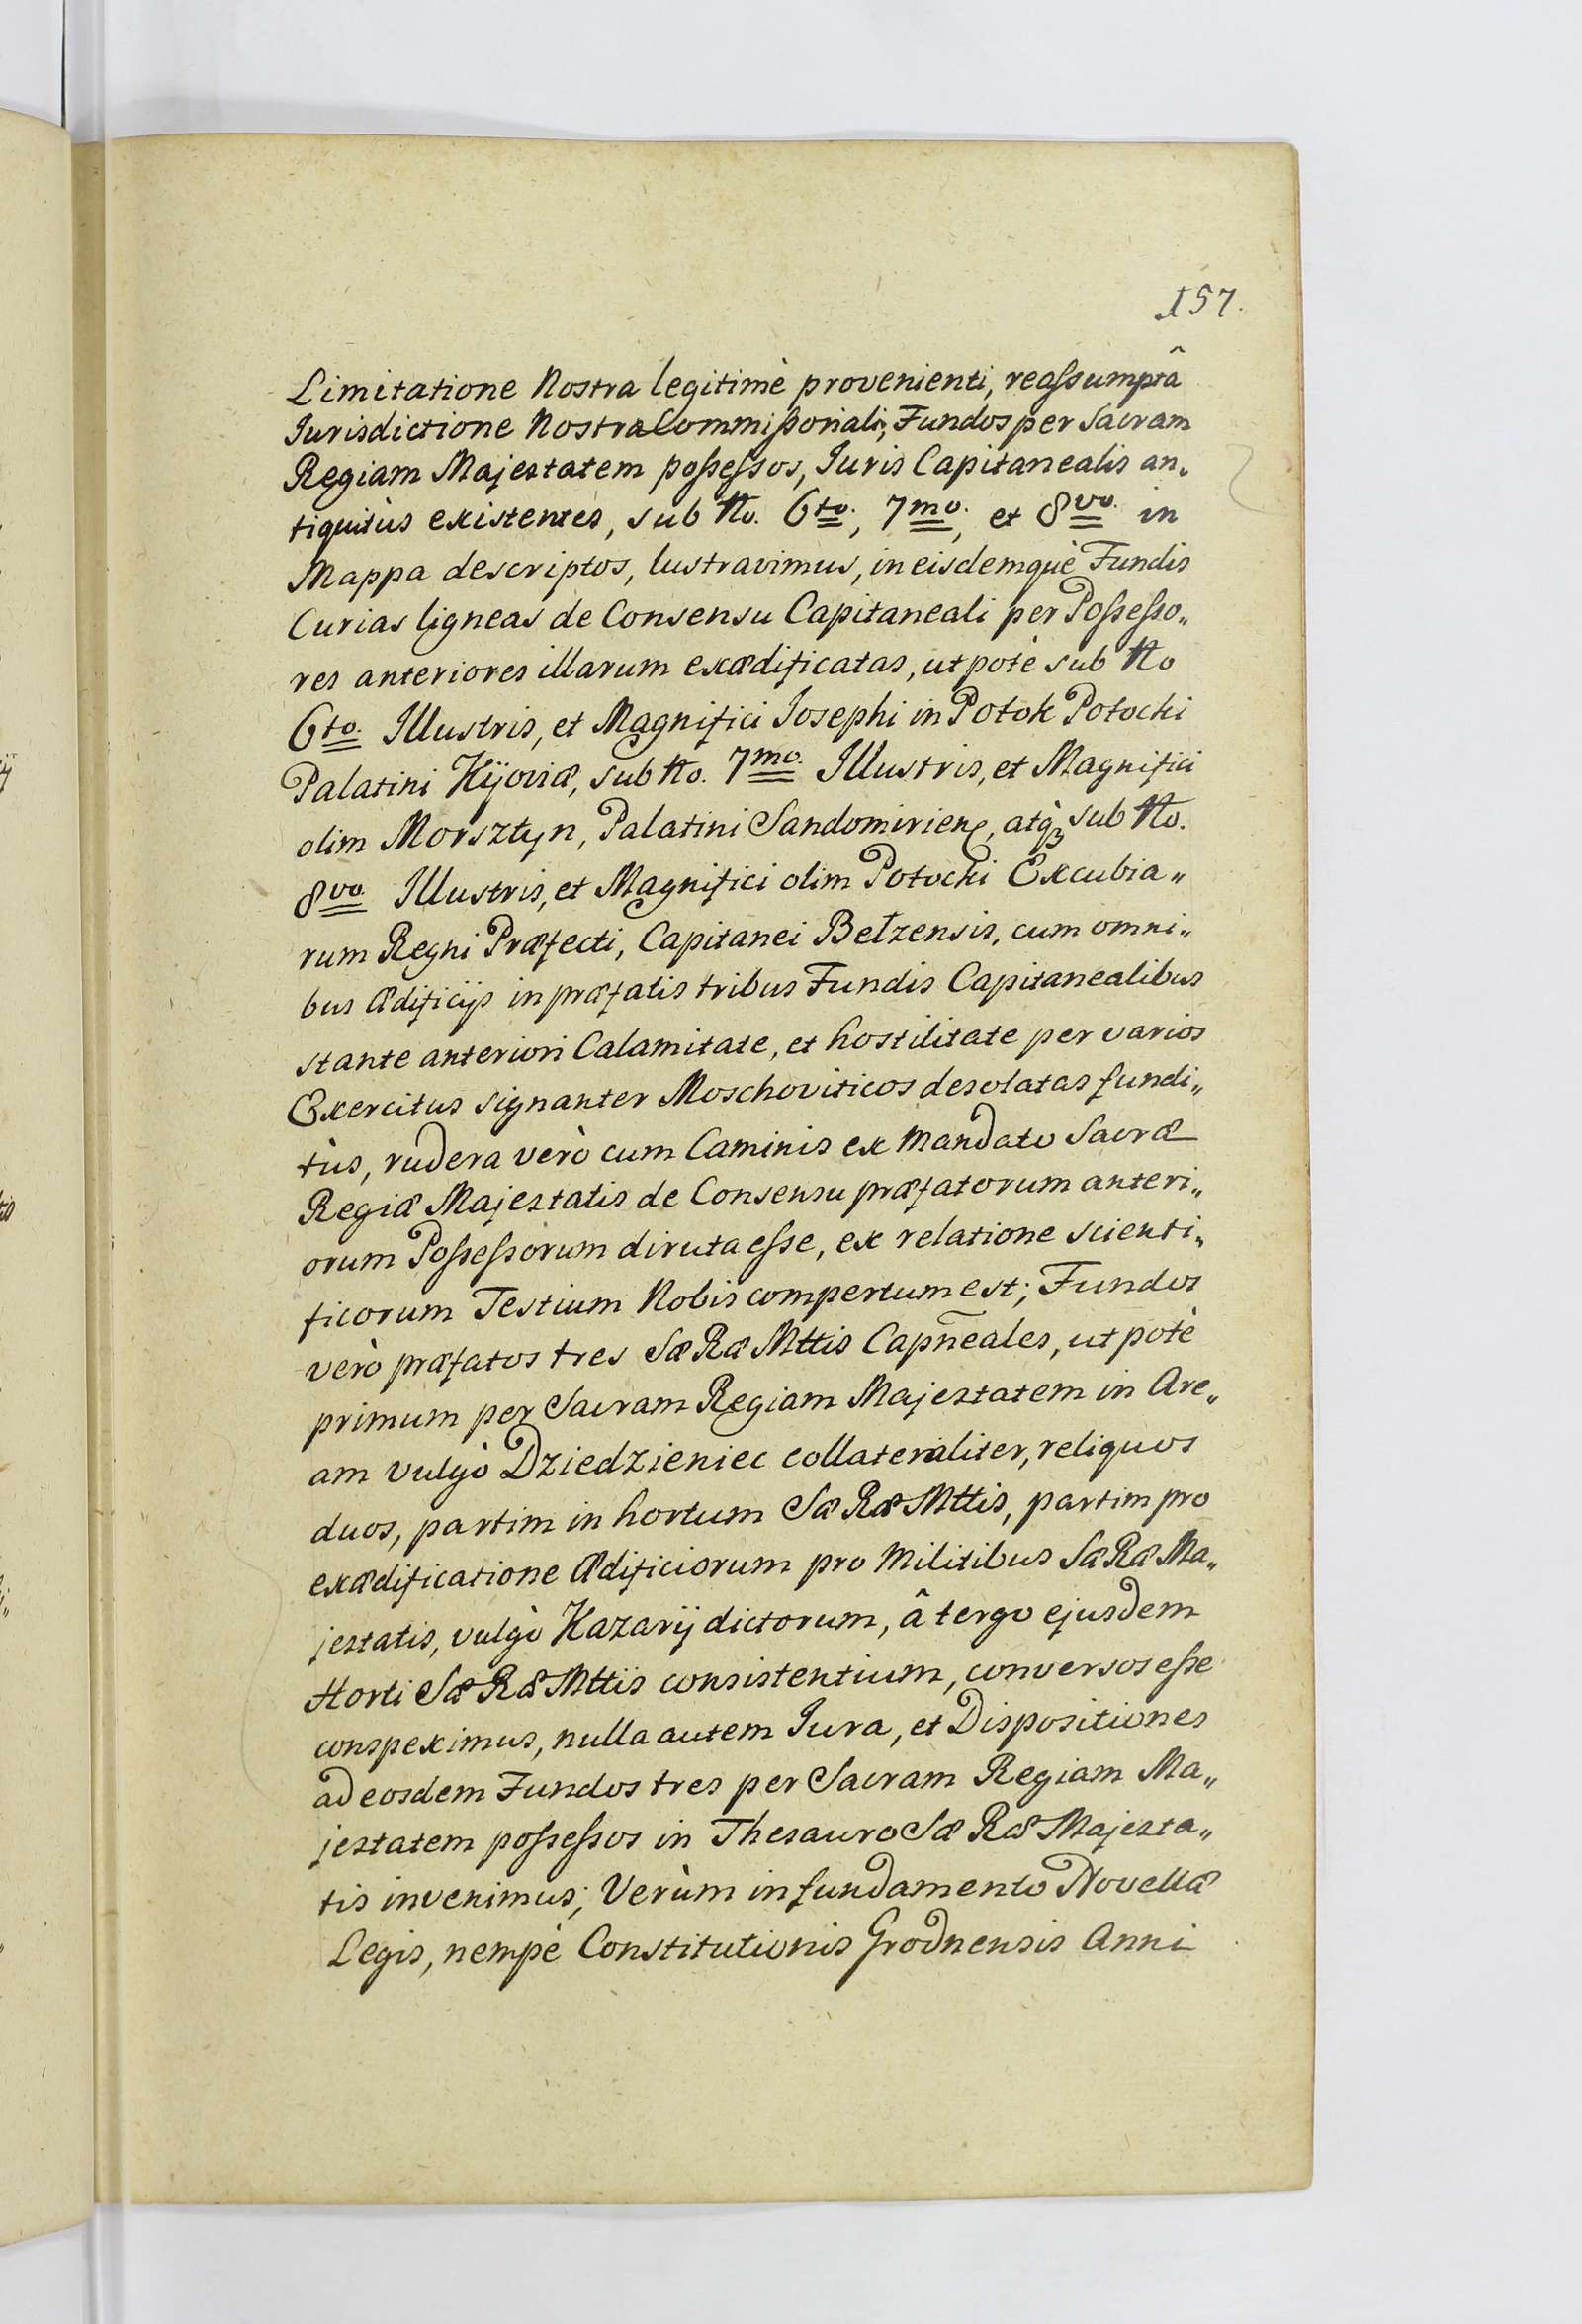 157.
Limitatione Nostra legitimè provenienti, reassumptâ
Jurisdictione Nostra Commissoriali, Fundos per Sacram
Regiam Majestatem possessos, Juris Capitanealis an„
tiquitùs existentes, sub No. 6to., 7mo., et 8vo. in
Mappa descriptos, lustravimus, in eisdemquè Fundis
Curias ligneas de Consensu Capitaneali per Possesso„
res anteriores illarum exædificatas, utpotè sub No
6to. Illustris, et Magnifici Josephi in Potok Potocki
Palatini Kijoviæ, sub No. 7mo. Illustris, et Magnifici
olim Morsztyn, Palatini Sandomirien, atq̀ sub No.
8vo. Illustris, et Magnifici olim Potocki Excubia„
rum Regni Præfecti, Capitanei Bełzensis, cum omni„
bus Ædificijs in præfatis tribus Fundis Capitanealibus
stante anteriori Calamitate, et hostilitate per varios
Exercitus signanter Moschoviticos desolatas fundi„
tùs, rudera verò cum Caminis ex Mandato Sacræ
Regiæ Majestatis de Consensu præfatorum anteri„
orum Possessorum diruta esse, ex relatione scienti„
ficorum Testium Nobis compertum est; Fundos
verò præfatos tres Sæ Ræ Mttis Capn̄eales, utpotè
primum per Sacram Regiam Majestatem in Are„
am vulgò Dziedzieniec collateraliter, reliquos
duos, partim in hortum Sæ Ræ Mttis, partim pro
exædificatione Ædificiorum pro Militibus Sæ Ræ Ma„
jestatis, vulgò Kazarÿ dictorum, â tergo ejusdem
Horti Sæ Ræ Mttis consistentium, conversos esse
conspeximus, nulla autem Jura, et Dispositiones
ad eosdem Fundos tres per Sacram Regiam Ma„
jestatem possessos in Thesauro Sæ Ræ Majesta„
tis invenimus; Verùm in fundamento Novellæ
Legis, nempè Constitutionis Grodnensis Anni